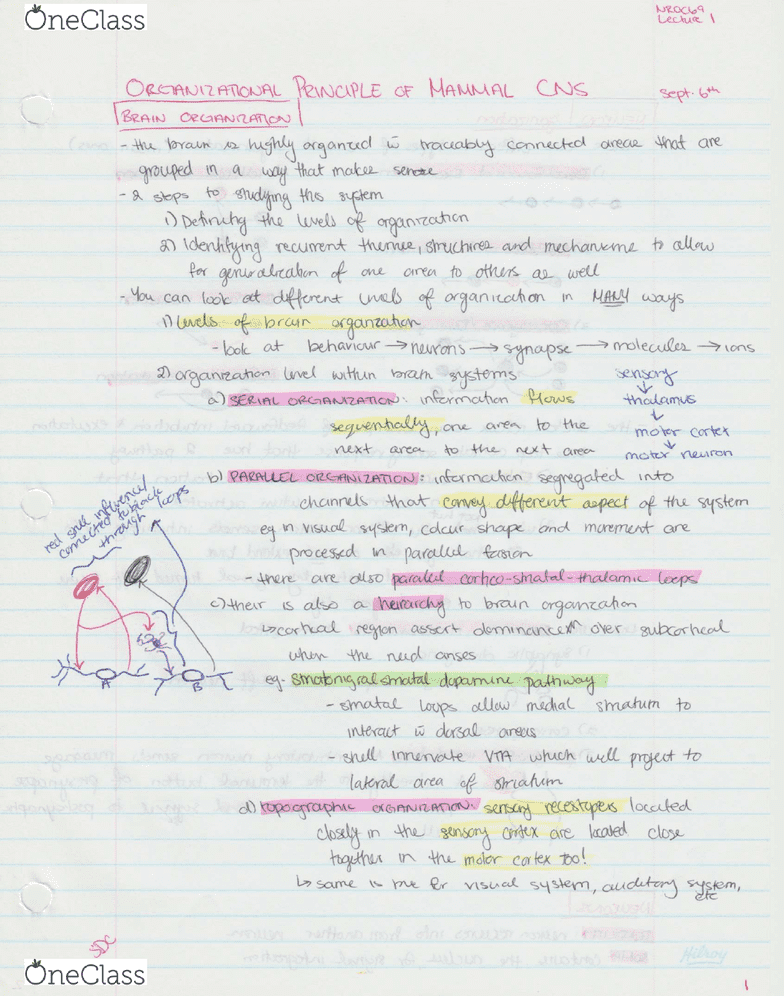 OneClass
NROC69
Lecture 1
ORGANIZATIONAL PRINCIPLE OF MAMMAL CNS
Sept. 6th
BRAIN ORGANIZATION
- the brain is highly organized w̄ traceably connected areas that are
grouped in a way that makes sense
- 2 steps to studying this system
1) Defining the levels of organization
2) Identifying recurrent themes, structures and mechanisms to allow
for generalization of one area to others as well
- You can look at different levels of organization in MANY ways
1) levels of brain organization
- look at behaviour → neurons → synapse → molecules → ions
2) organization level within brain systems
a) SERIAL ORGANIZATION: information flows
sequentially, one area to the
next area to the next area
sensory
↓
thalamus
↓
motor cortex
↓
motor neuron
b) PARALLEL ORGANIZATION: information segregated into
channels that convey different aspect of the system
eg in visual system, colour shape and movement are
processed in parallel fasion
- there are also parallel cortico-striatal-thalamic loops
c) their is also a hierarchy to brain organization
↳ cortical region assert dominance over subcortical
when the need arises
eg- striatonigralstriatal dopamine pathway
- striatal loops allow medial striatum to
interact w̄ dorsal areas
- shell innervate VTA which will project to
lateral area of striatum
d) topographic ORGANIZATION: sensory receptors located
closely in the sensory cortex are located close
together in the motor cortex too!
↳ same is true for visual system, auditory system,
etc
red still influence/
connected to black
through loops
A
B
SDC
Hilroy
OneClass
1